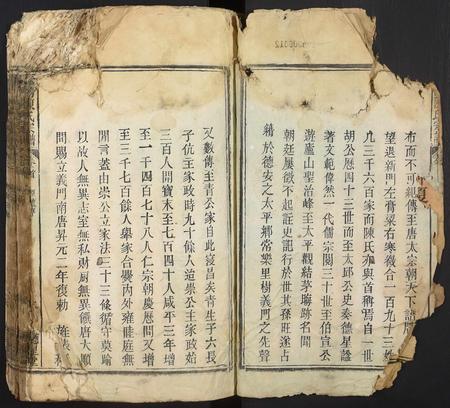 布而不可親傳至唐太宗朝天下譜牒
望退新門左膏粱右寒畯合一百九十三姓
凡三千六百家而陳氏亦與首稱焉自一世
胡公歷四十三世而至太邱公史奏德星謚
著文範偉然一代儒宗閱三十世至伯宣公
遊廬山聖治峰至太平觀結茅晦跡名聞
朝廷屢徵不起註史記行於世其孫旺遂占
籍於德安之太平鄉常樂里樹義門之先聲
又數傳至青公家自此寖昌矣青生子六長
子伉主家政時九十餘人迨崇公主家政始
三百人開寶末至七百四十人咸平三年增
至一千四百七十八人仁宗朝慶曆間又增
至三千七百餘人舉家合爨內外雍睦庭無
閒言蓋由崇公立家法三十三條循守莫踰
以故人無異志室無私財厨無異饌唐大順
間賜立義門南唐昇元二年復勅旌表